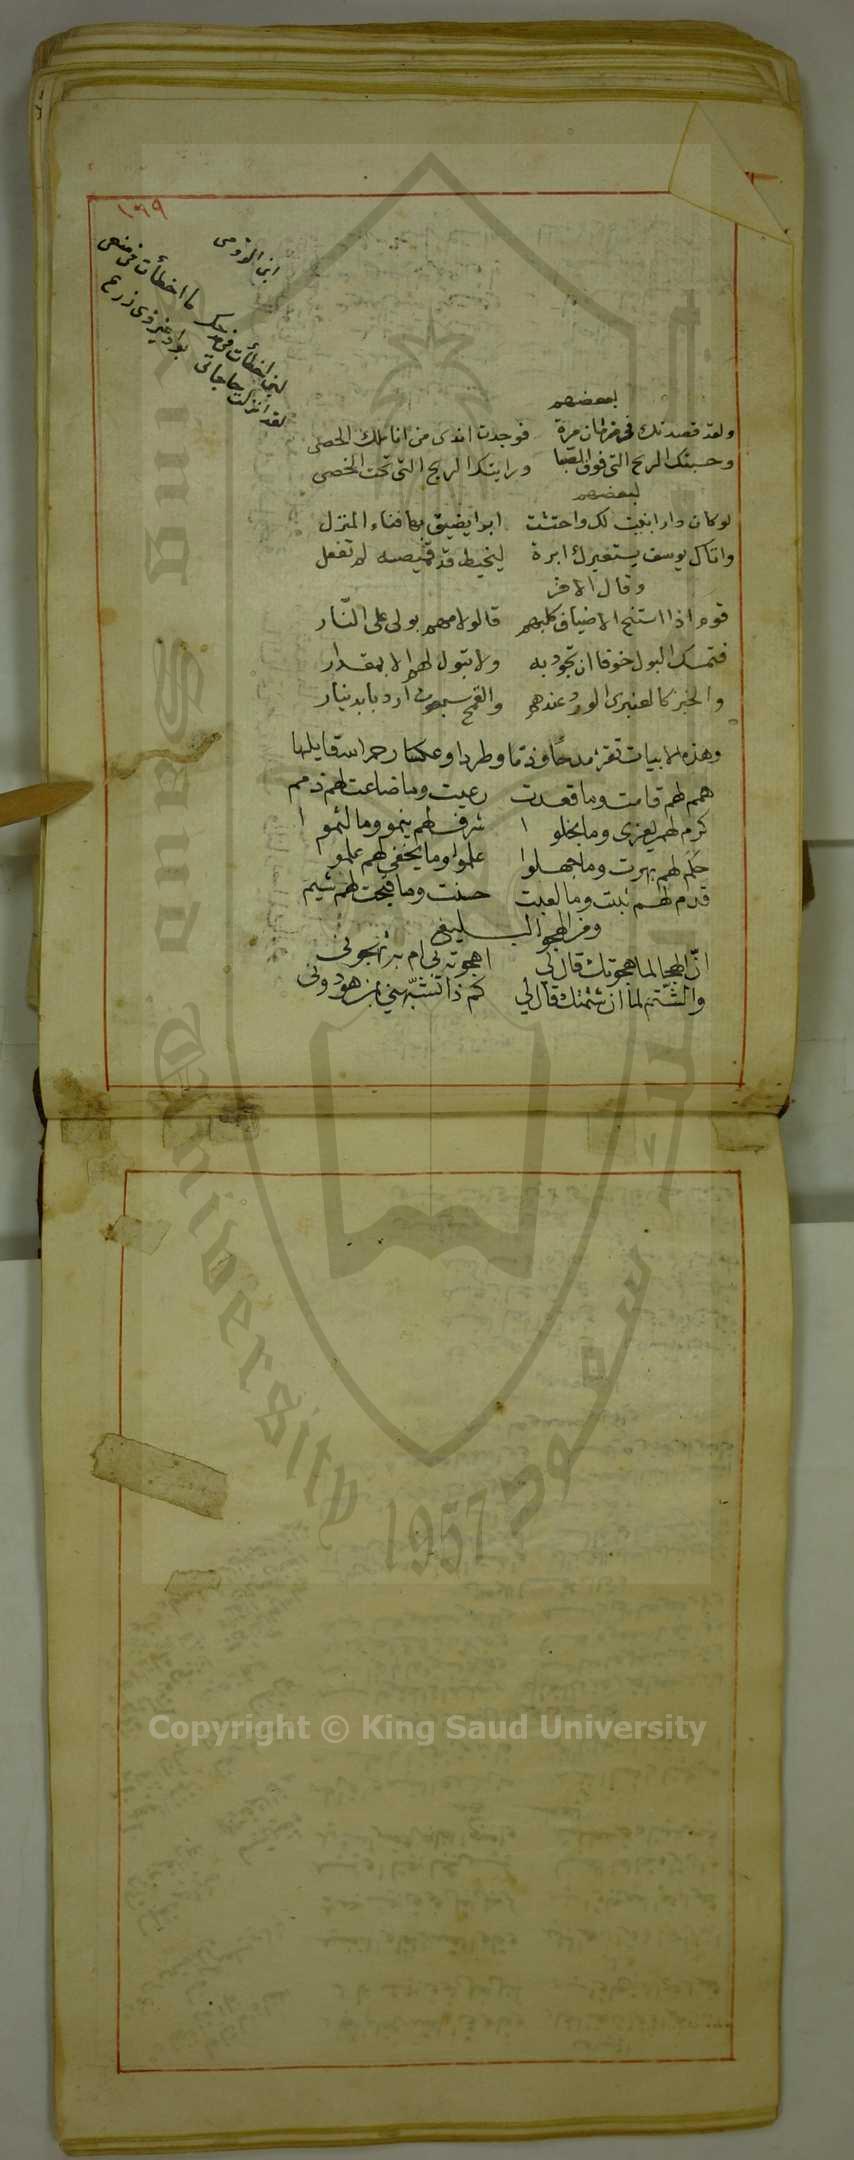 ١٩٩
ابن الرومي
لئن اخطأت في مدحك ما اخطأت في منعي
لقد انزلت حاجاتي بواد غير ذي زرع
لبعضهم
ولقد قصدتك في مرة فوجدت اندى من اناملك الحصى
وحسبتك الريح التي فوق الصبا ورايتك الريح التي تحت الخصى
لبعضهم
لو كان دارا انبتت لك واحتشت ابرا يضيق بها فناء المنزل
واتاك يوسف يستعيرك ابرة ليخيط قد قميصه لم تفعل
وقال الاخر
قوم اذا استنبح الاضياف كلبهم قالو لامهم بولى على النّار
فتمسك البول خوفا ان تجود به ولا تبول لهم الا بمقدار
والخبز كالعنبرى الورد عندهم والقمح اردبا بدينار
وهذه الابيات تقرء مدحًا وذمّا وطردا وعكسا رحم الله قايلها
همم لهم قامت وما قعدت رعيت وما ضاعت لهم ذمم
كرم لهم يعزى وما بخلوا شرف لهم ينمو وما لئموا
حكم لهم بهرت وما جهلوا علموا وما يخفى لهم علموا
قدم لهم ثبتت وما لعبت حسنت وما قبحت لهم شيم
ومن الهجو البليغ
انّ الهجا لما هجوتك قال لي اهجوته بي ام به تهجوني
والشّتم لما ان شتمتك قال لي كم ذا تشبّهني بمن هو دوني
King Saud University
1957
Copyright © King Saud University